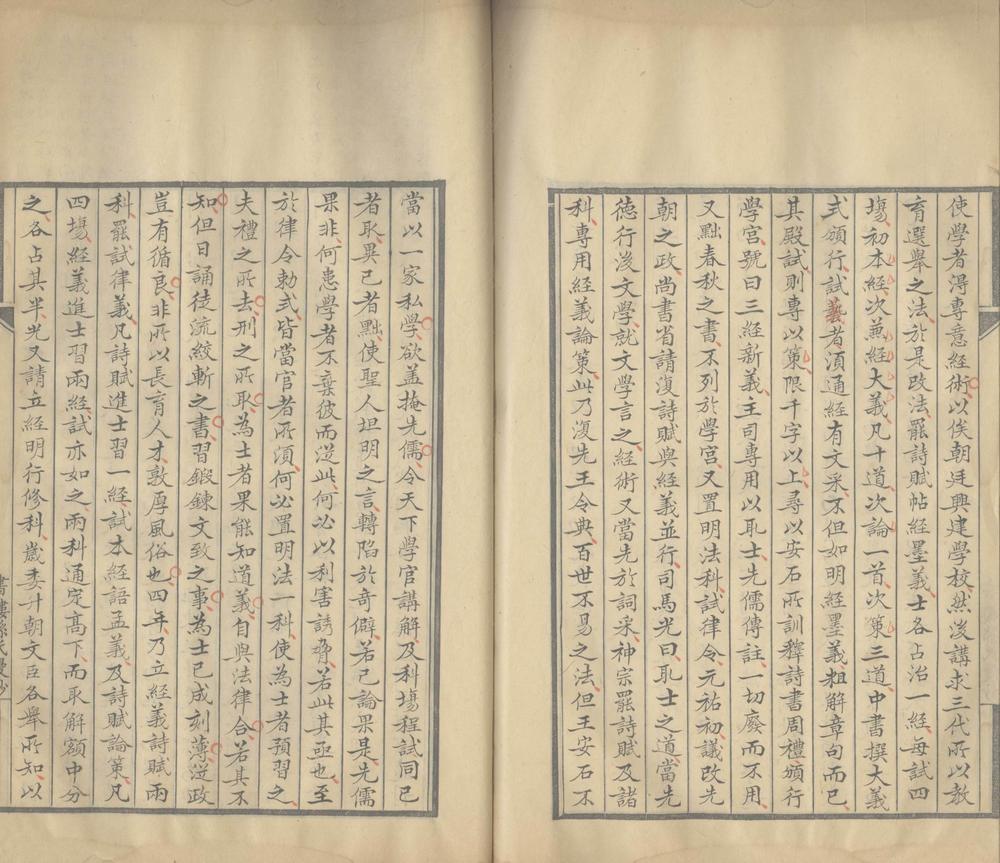 使學者得專意經術以俟朝廷興建學校然後講求三代所以教
育選舉之法於是改法罷詩賦帖經墨義士各占治一經每試四
塲初本經次兼經大義凡十道次論一首次策三道中書撰大義
式頒行試義者須通經有文采不但如明經墨義粗解章句而已
其殿試則專以策限千字以上尋以安石所訓釋詩書周禮頒行
學宮號曰三經新義主司專用以取士先儒傳註一切廢而不用
又黜春秋之書不列於學宮又置明法科試律令元祐初議改先
朝之政尚書省請復詩賦與經義並行司馬光曰取士之道當先
德行後文學就文學言之經術又當先於詞采神宗罷詩賦及諸
科專用經義論策此乃復先王令典百世不易之法但王安石不
當以一家私學欲盖掩先儒令天下學官講解及科塲程試同己
者取異己者黜使聖人坦明之言轉陷於奇僻若己論果是先儒
果非何患學者不棄彼而從此何必以利害誘脅若此其亟也至
於律令勅式皆當官者所須何必置明法一科使為士者預習之
夫禮之所去刑之所取為士者果能知道義自與法律合若其不
知但日誦徒流絞斬之書習鍛鍊文致之事為士已成刻薄從政
豈有循良非所以長育人才敦厚風俗也四年乃立經義詩賦兩
科罷試律義凡詩賦進士習一經試本經語孟義及詩賦論策凡
四塲經義進士習兩經試亦如之兩科通定髙下而取解額中分
之各占其半光又請立經明行修科歲委升朝文臣各舉所知以